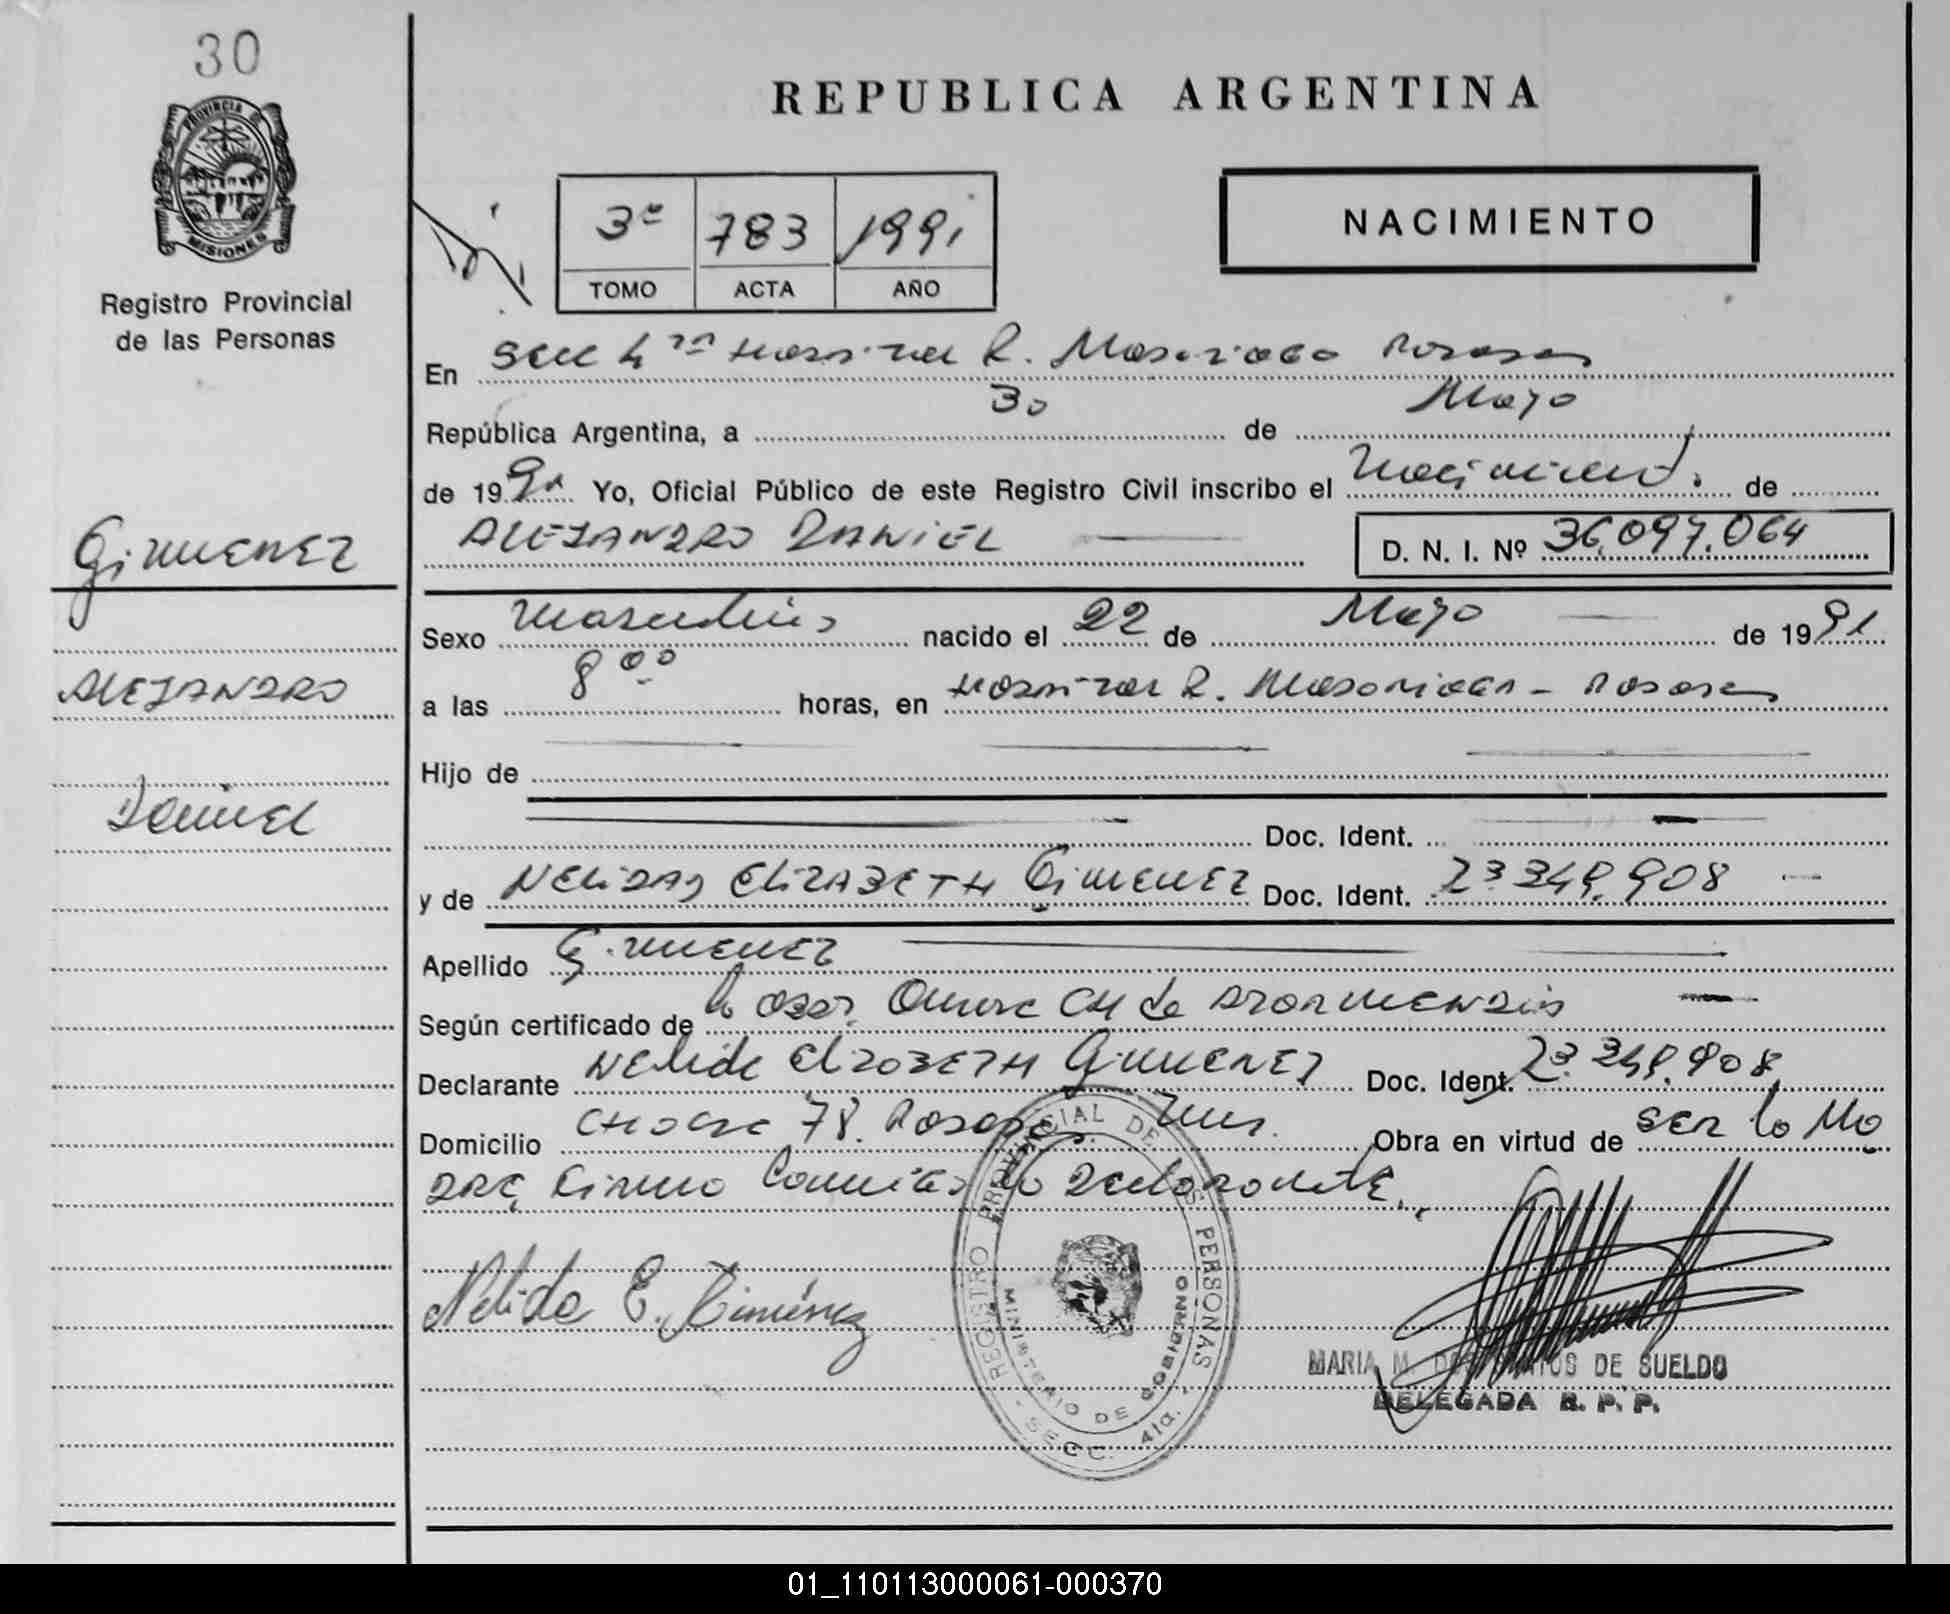 30
PROVINCIA DE
MISIONES
Registro Provincial
de las Personas
REPUBLICA ARGENTINA
NACIMIENTO
3º 783 1991
TOMO ACTA AÑO
En Secc 4ta Hospital R. Madariaga Posadas
República Argentina, a 30 de Mayo
de 1991 Yo, Oficial Público de este Registro Civil inscribo el Nacimiento de
ALEJANDRO DANIEL D. N. I. Nº 36.097.064
GiMENEZ
ALEJANDRO
Daniel
Sexo Masculino nacido el 22 de Mayo de 1991
a las 8 00 horas, en Hospital R. Madariaga - Posadas
Hijo de
Doc. Ident.
y de NELIDA ELIZABETH GiMENEZ Doc. Ident. 23.349.908
Apellido GiMENEZ
Según certificado de la Obst.
Declarante Nelida Elizabeth Gimenez Doc. Ident. 23.349.908
Domicilio Chacra 78. Posadas. Mnes. Obra en virtud de ser la Ma
dre, Firma la Declarante.
Nelida E. Giménez
REGISTRO PROVINCIAL DE LAS PERSONAS
MINISTERIO DE GOBIERNO
- SECC. 4ta. -
MARIA M. DE SUELDO
DELEGADA R. P. P.
01_110113000061-000370